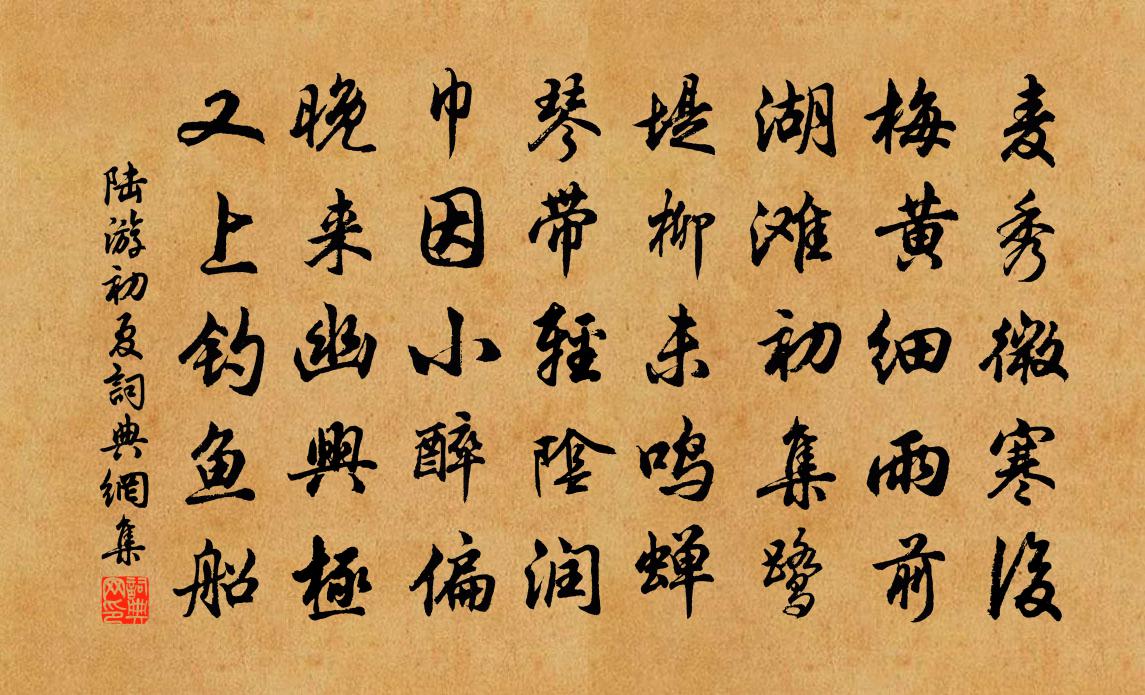 麦秀微寒後
梅黄细雨前
湖滩初集鹭
堤柳未鸣蝉
琴带轻陰润
巾因小醉偏
晚来幽興極
又上钓鱼船
陆游初夏詞典網集
詞典网印